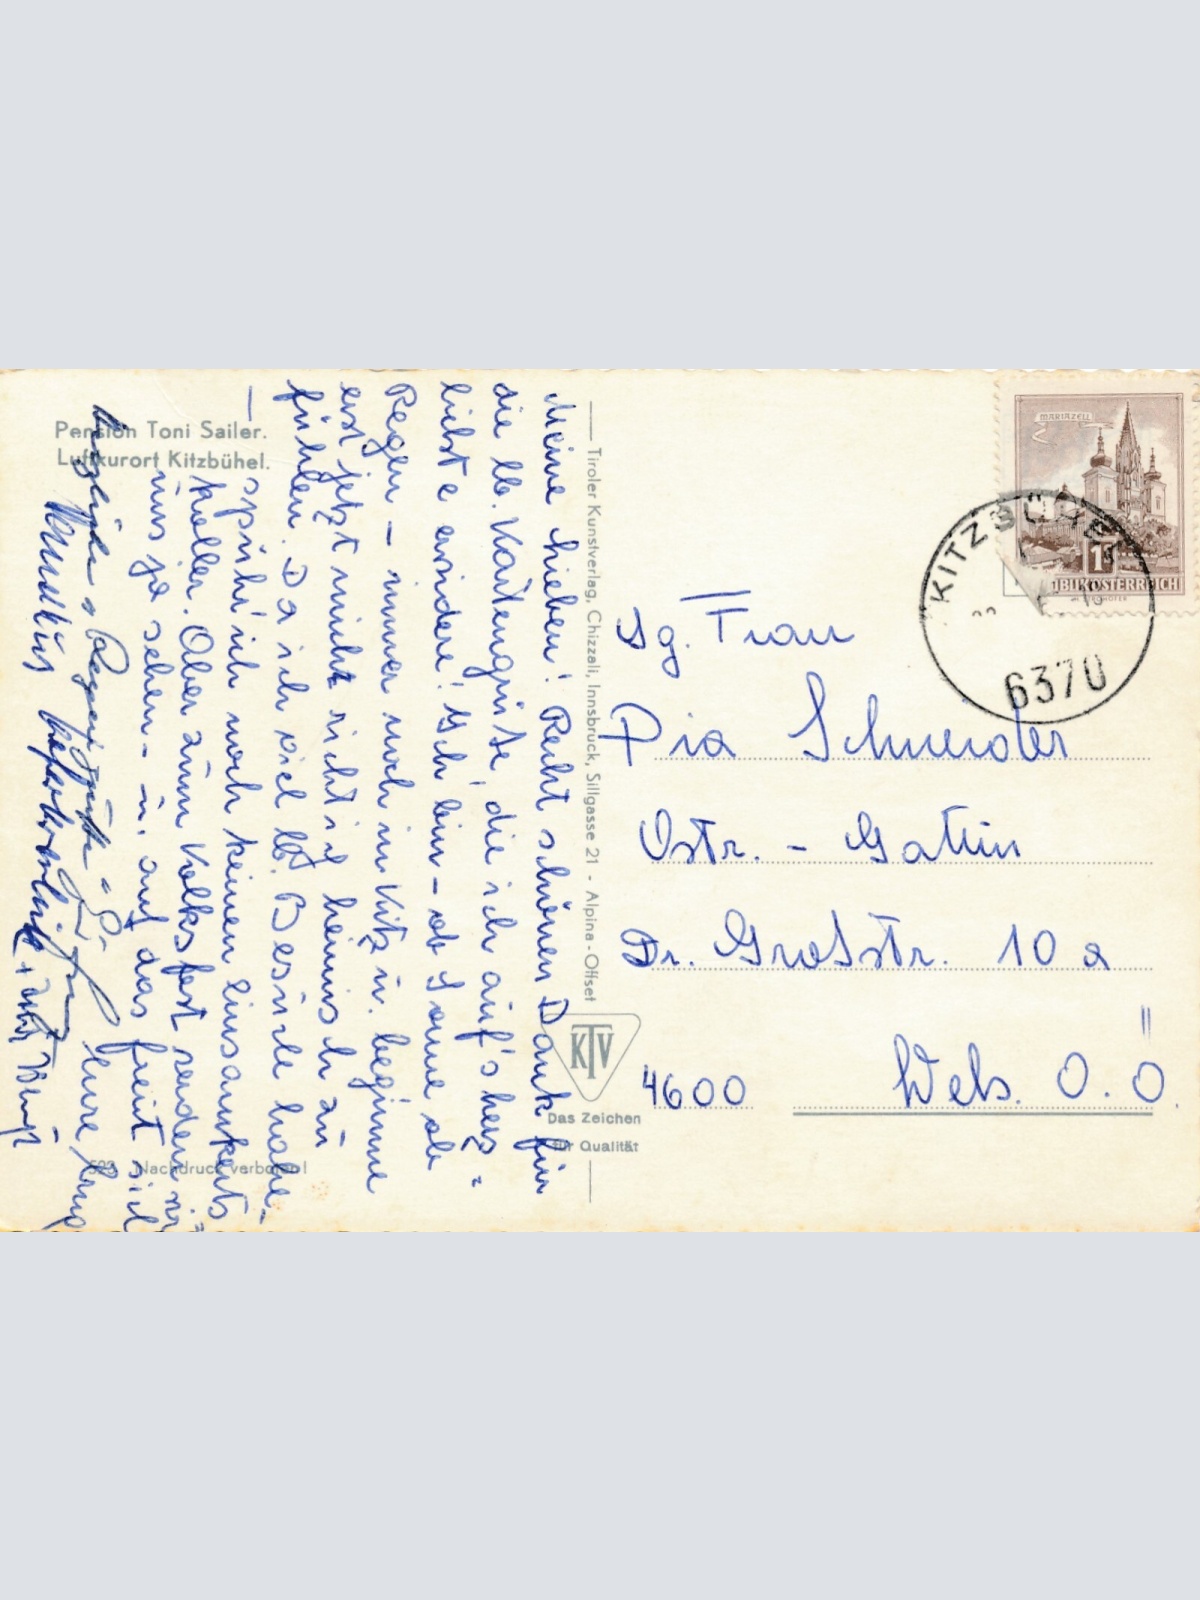 Pension Toni Sailer.
Luftkurort Kitzbühel.
Meine Lieben! Recht schönen Dank für
die lb. Kartengrüße, die ich auf's herz-
lichste erwidere! Ich bin - ob Sonne ob
Regen - immer noch in Kitz u. beginne
erst jetzt mich richtig heimisch zu
fühlen. Da ich viel lb. Besuch habe,
- spühr' ich noch keinen Einsamkeits
koller. Aber zum Volksfest werden wir
uns ja sehen - u. auf das freut sich
Eure
523 Nachdruck verboten!
Tiroler Kunstverlag, Chizzali, Innsbruck, Sillgasse 21 - Alpina-Offset
KTV
Das Zeichen
für Qualität
MARIAZELL
1S
REPUBLIK ÖSTERREICH
KITZBÜHEL
6370
Sg. Frau
Pia Schneider
Ostr. - Gattin
Dr. Großstr. 10 a
4600 Wels. O.Ö.